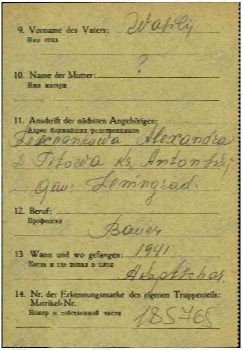 9. Vorname des Vaters: Wasilij
Имя отца
?
10. Name der Mutter:
Имя матери
11. Anschrift der nächsten Angehörigen:
Адрес ближайших родственников
Alexandra
D. Titowa Kr.
Gau: Leningrad.
12. Beruf:
Профессия
Bauer
13 Wann und wo gefangen: 1941
Когда и где попал в плен
14. Nr. der Erkennungsmarke des eigenen Truppenteils:
Matrikel-Nr. 185765
Номер в собственной части